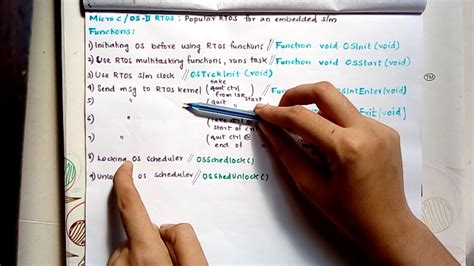 Micro C/OS-II RTOS: Popular RTOS for an embedded s/m
Functions:
1) Initiating OS before using RTOS functions // Function void OSInit (void)
2) Use RTOS multitasking functions, runs task // Function void OSStart (void)
3) Use RTOS s/m clock // OSTickInit (void)
take
4) Send msg to RTOS kernel (quit ctrl // OSIntEnter (void)
from ISR
5) " (quit " start
Exit (void)
6) " (take ctrl @
start of
7) (quit ctrl @
end of "
8) Locking OS scheduler // OSSchedlock ()
9) OS scheduler // OSShedUnlock ()
TM